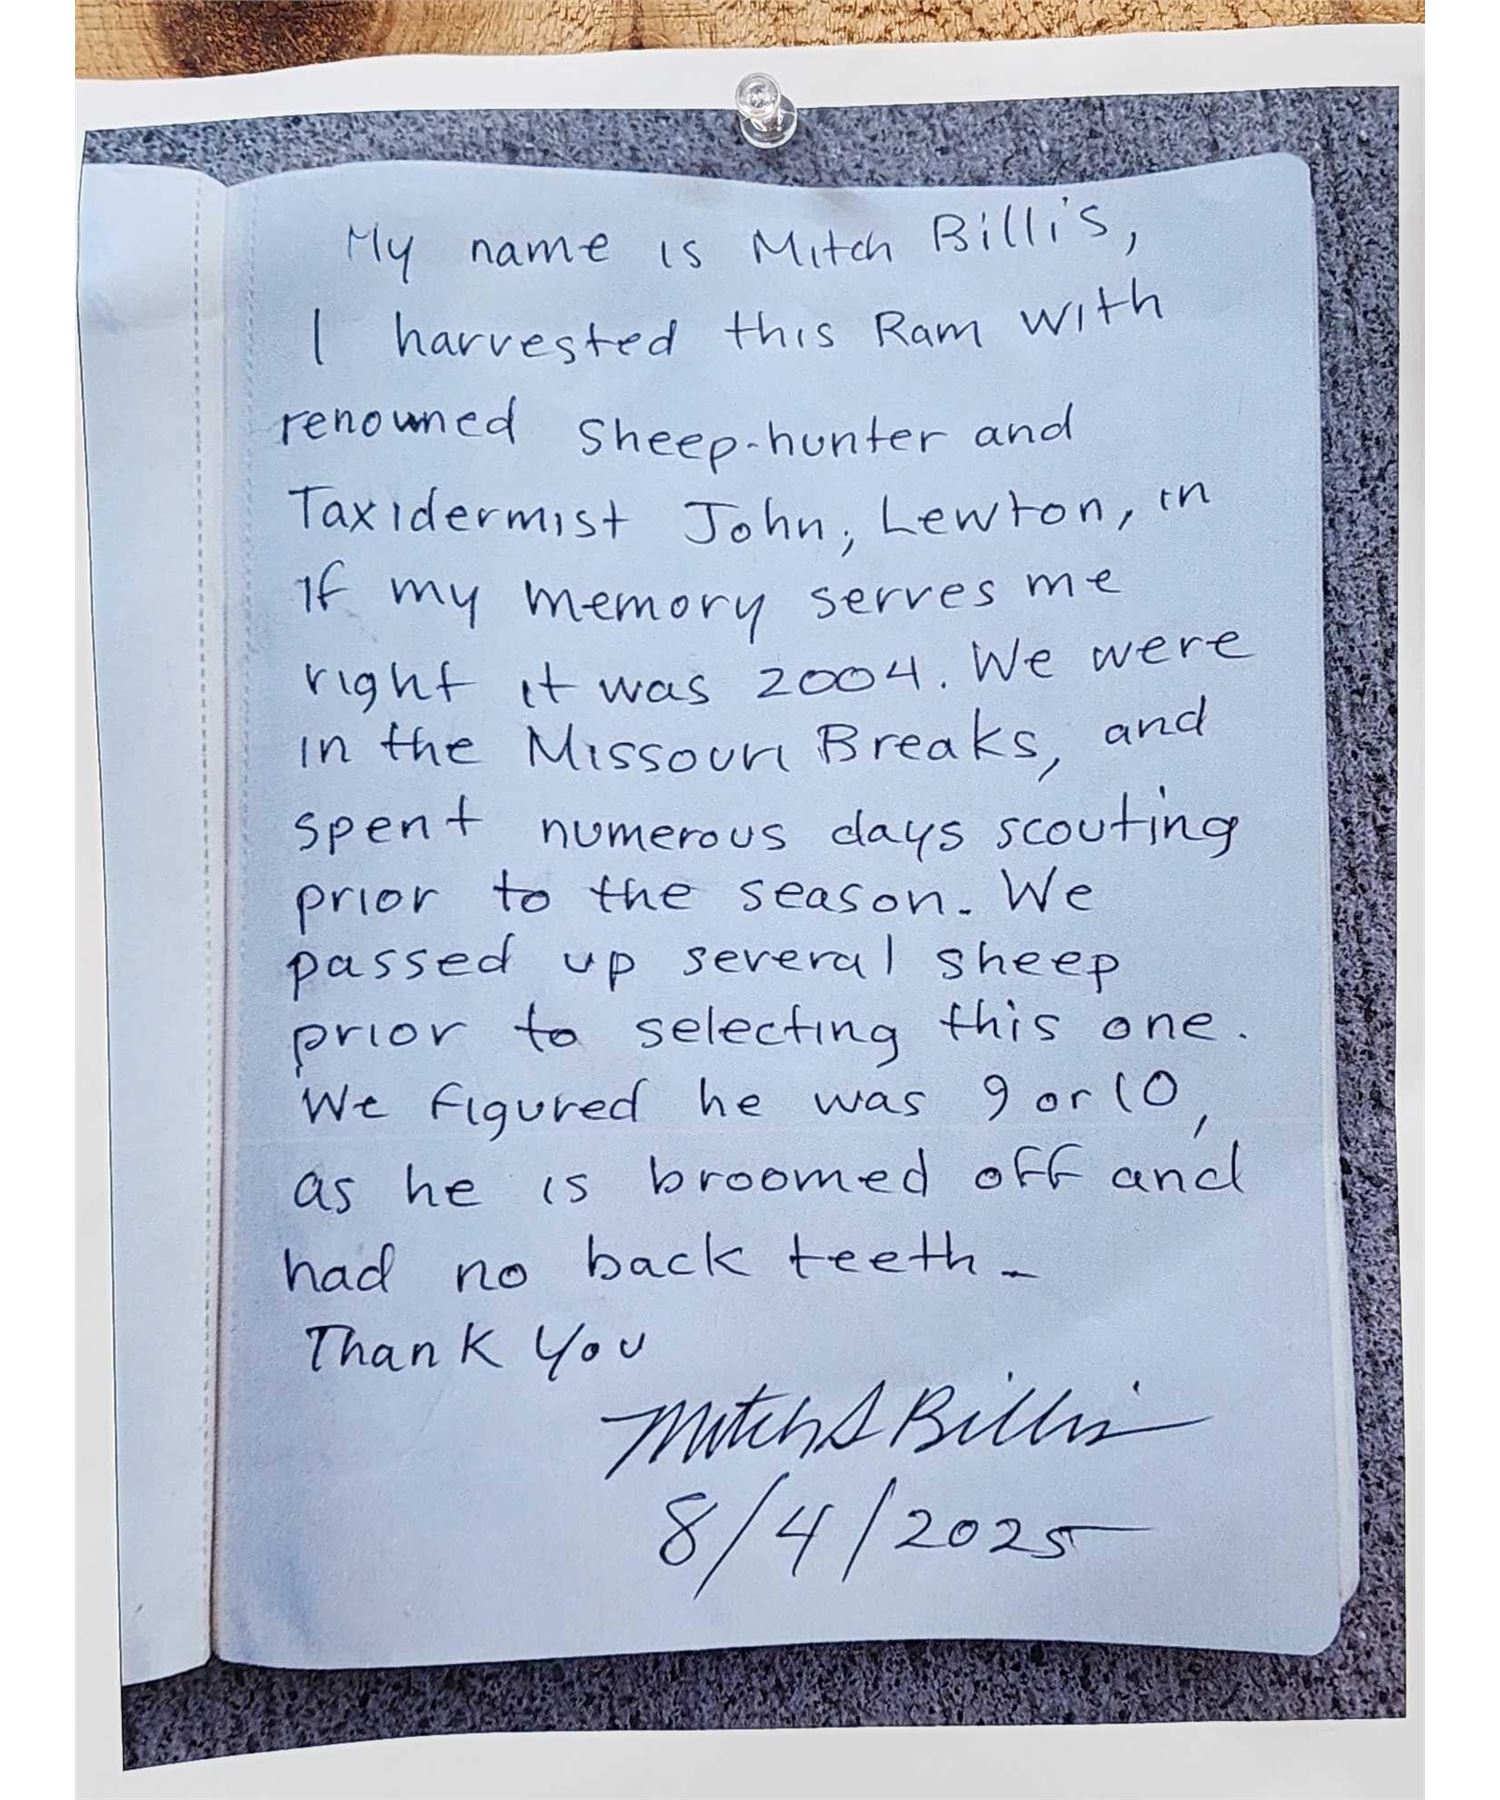 My name is Mitch Billis,
I harvested this Ram with
renowned sheep-hunter and
Taxidermist John, Lewton, in
if my memory serves me
right it was 2004. We were
in the Missouri Breaks, and
spent numerous days scouting
prior to the season. We
passed up several sheep
prior to selecting this one.
We figured he was 9 or 10,
as he is broomed off and
had no back teeth.
Thank You
Mitch S Billis
8/4/2025